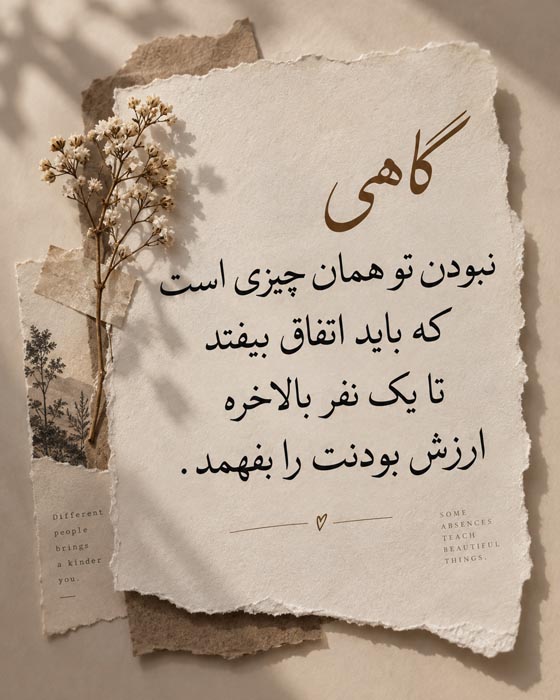 گاهی
نبودن تو همان چیزی است
که باید اتفاق بیفتد
تا یک نفر بالاخره
ارزش بودنت را بفهمد.
Different
people
brings
a kinder
you.
SOME
ABSENCES
TEACH
BEAUTIFUL
THINGS.